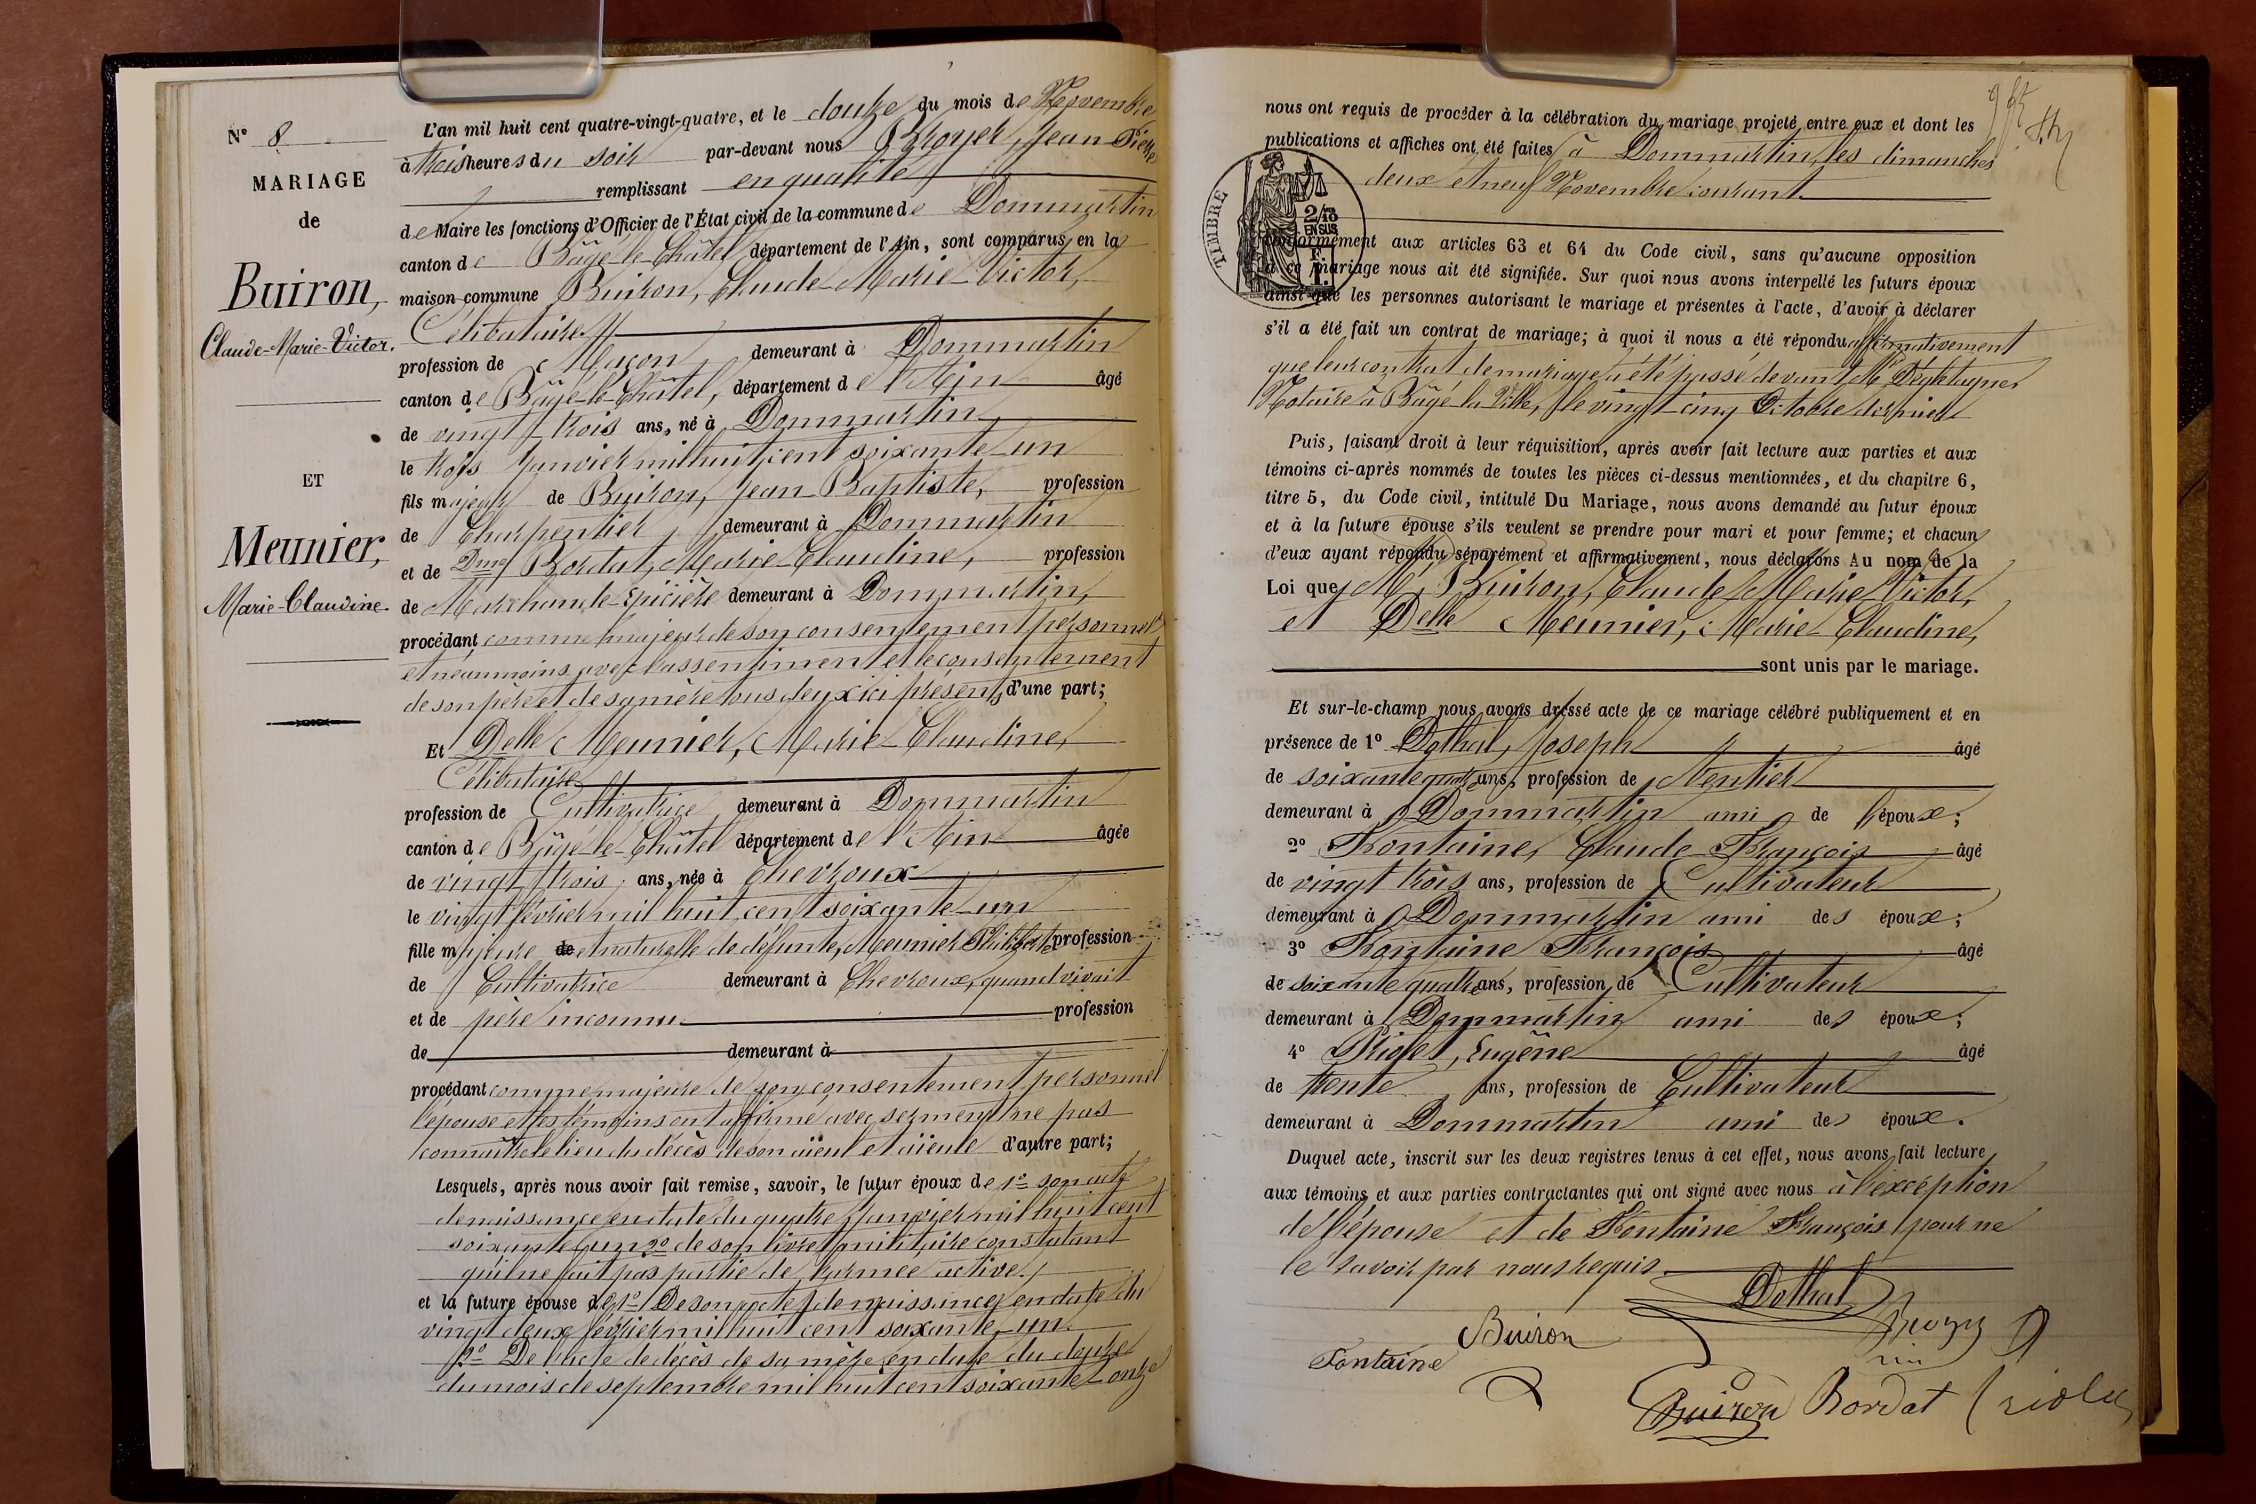 N° 8
MARIAGE
de
Buiron,
Claude-Marie-Victor.
ET
Meunier,
Marie-Claudine.
L'an mil huit cent quatre-vingt-quatre, et le douze du mois de Novembre
à trois heures du soir par-devant nous Broyer, Jean Pierre
remplissant en qualité
de Maire les fonctions d'Officier de l'État civil de la commune de Dommartin
canton de Bâgé-le-Châtel département de l'Ain, sont comparus en la
maison commune Buiron, Claude-Marie-Victor,
Célibataire
profession de Maçon, demeurant à Dommartin
canton de Bâgé-le-Châtel, département de l'Ain âgé
de vingt trois ans, né à Dommartin
le trois Janvier mil huit cent soixante-un
fils majeur de Buiron, Jean-Baptiste, profession
de Charpentier, demeurant à Dommartin
et de Dme Bordat, Marie-Claudine, profession
de Marchande-Epicière demeurant à Dommartin,
procédant comme majeur de son consentement personnel
et néanmoins avec l'assentiment et le consentement
de son père et de sa mère tous deux ici présents, d'une part;
Et Delle Meunier, Marie-Claudine,
Célibataire
profession de Cultivatrice demeurant à Dommartin
canton de Bâgé-le-Châtel département de l'Ain âgée
de vingt trois ans, née à Chevroux
le vingt février mil huit cent soixante-un
fille majeure de et naturelle de défunte, Meunier Philiberte profession
de Cultivatrice demeurant à Chevroux, quand vivait
et de père inconnu. profession
de demeurant à
procédant comme majeure de son consentement personnel
l'épouse et les témoins ont affirmé avec serment ne pas
connaître le lieu du décès de son aïeul et aïeule d'autre part;
Lesquels, après nous avoir fait remise, savoir, le futur époux de 1° son acte
de naissance en date du quatre Janvier mil huit cent
soixante un 2° de son livret militaire constatant
qu'il ne fait pas partie de l'armée active.
et la future épouse de 1° De son acte de naissance en date du
vingt deux février mil huit cent soixante-un.
2° De l'acte de décès de sa mère en date du douze
du mois de septembre mil huit cent soixante-onze
nous ont requis de procéder à la célébration du mariage projeté entre eux et dont les
publications et affiches ont été faites à Dommartin, les dimanches
deux et neuf Novembre courant.
TIMBRE
2/10
EN SUS
F.
1.
conformément aux articles 63 et 64 du Code civil, sans qu'aucune opposition
à ce mariage nous ait été signifiée. Sur quoi nous avons interpellé les futurs époux
ainsi que les personnes autorisant le mariage et présentes à l'acte, d'avoir à déclarer
s'il a été fait un contrat de mariage; à quoi il nous a été répondu affirmativement
que leur contrat de mariage a été passé devant Me
Notaire à Bâgé-la-Ville, le vingt-cinq Octobre dernier
Puis, faisant droit à leur réquisition, après avoir fait lecture aux parties et aux
témoins ci-après nommés de toutes les pièces ci-dessus mentionnées, et du chapitre 6,
titre 5, du Code civil, intitulé Du Mariage, nous avons demandé au futur époux
et à la future épouse s'ils veulent se prendre pour mari et pour femme; et chacun
d'eux ayant répondu séparément et affirmativement, nous déclarons Au nom de la
Loi que Mr Buiron, Claude Marie Victor,
et Delle Meunier, Marie-Claudine,
sont unis par le mariage.
Et sur-le-champ nous avons dressé acte de ce mariage célébré publiquement et en
présence de 1° Dothal, Joseph âgé
de soixante quatre ans, profession de Rentier
demeurant à Dommartin ami de l'époux;
2° Fontaine, Claude-François âgé
de vingt trois ans, profession de Cultivateur
demeurant à Dommartin ami des époux;
3° Fontaine François âgé
de soixante quatre ans, profession de Cultivateur
demeurant à Dommartin ami des époux;
4° Eugène âgé
de trente ans, profession de Cultivateur
demeurant à Dommartin ami des époux.
Duquel acte, inscrit sur les deux registres tenus à cet effet, nous avons fait lecture
aux témoins et aux parties contractantes qui ont signé avec nous à l'exception
de l'épouse et de Fontaine François pour ne
le savoir par nous requis.
Dothal
Buiron
Fontaine
Buiron Bordat